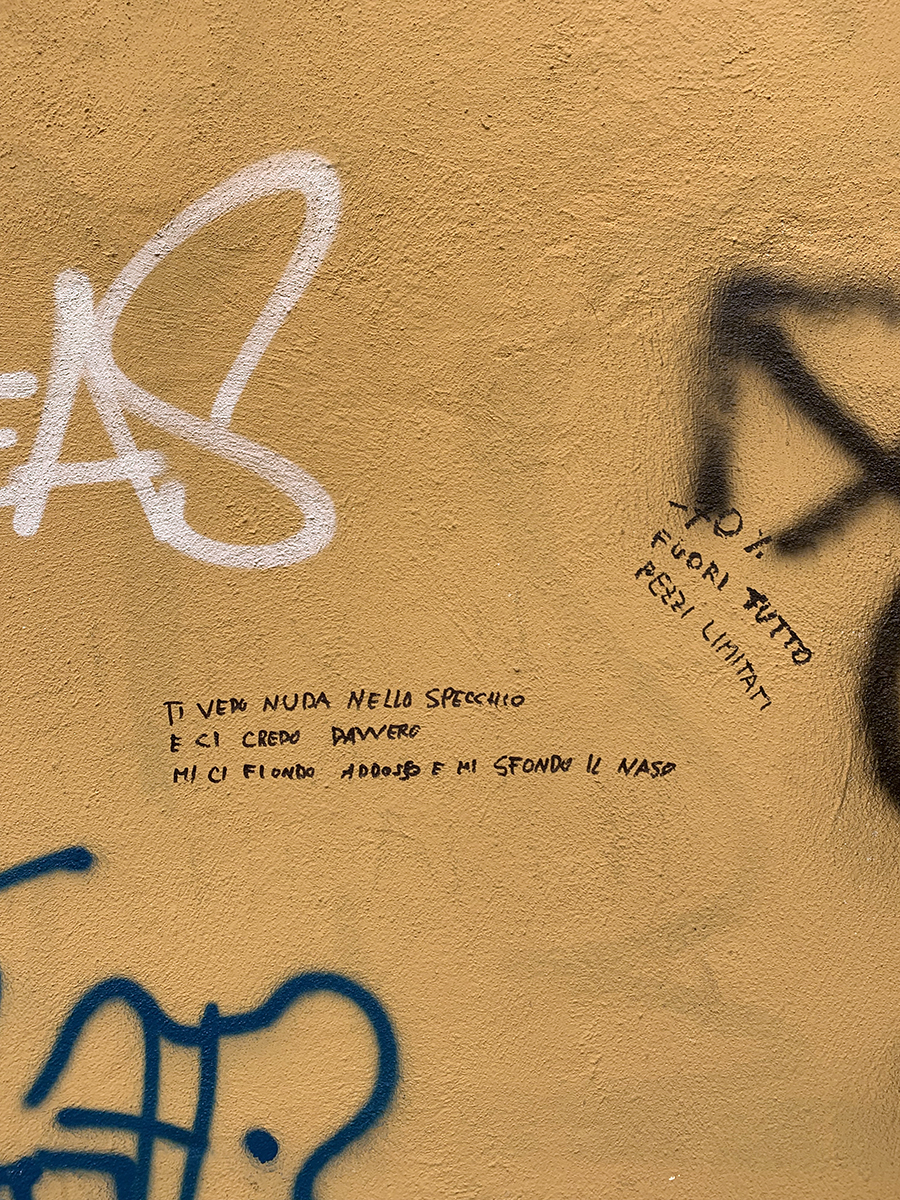 EAS
-70%
FUORI TUTTO
PEZZI LIMITATI
TI VEDO NUDA NELLO SPECCHIO
E CI CREDO DAVVERO
MI CI FIONDO ADDOSSO E MI SFONDO IL NASO